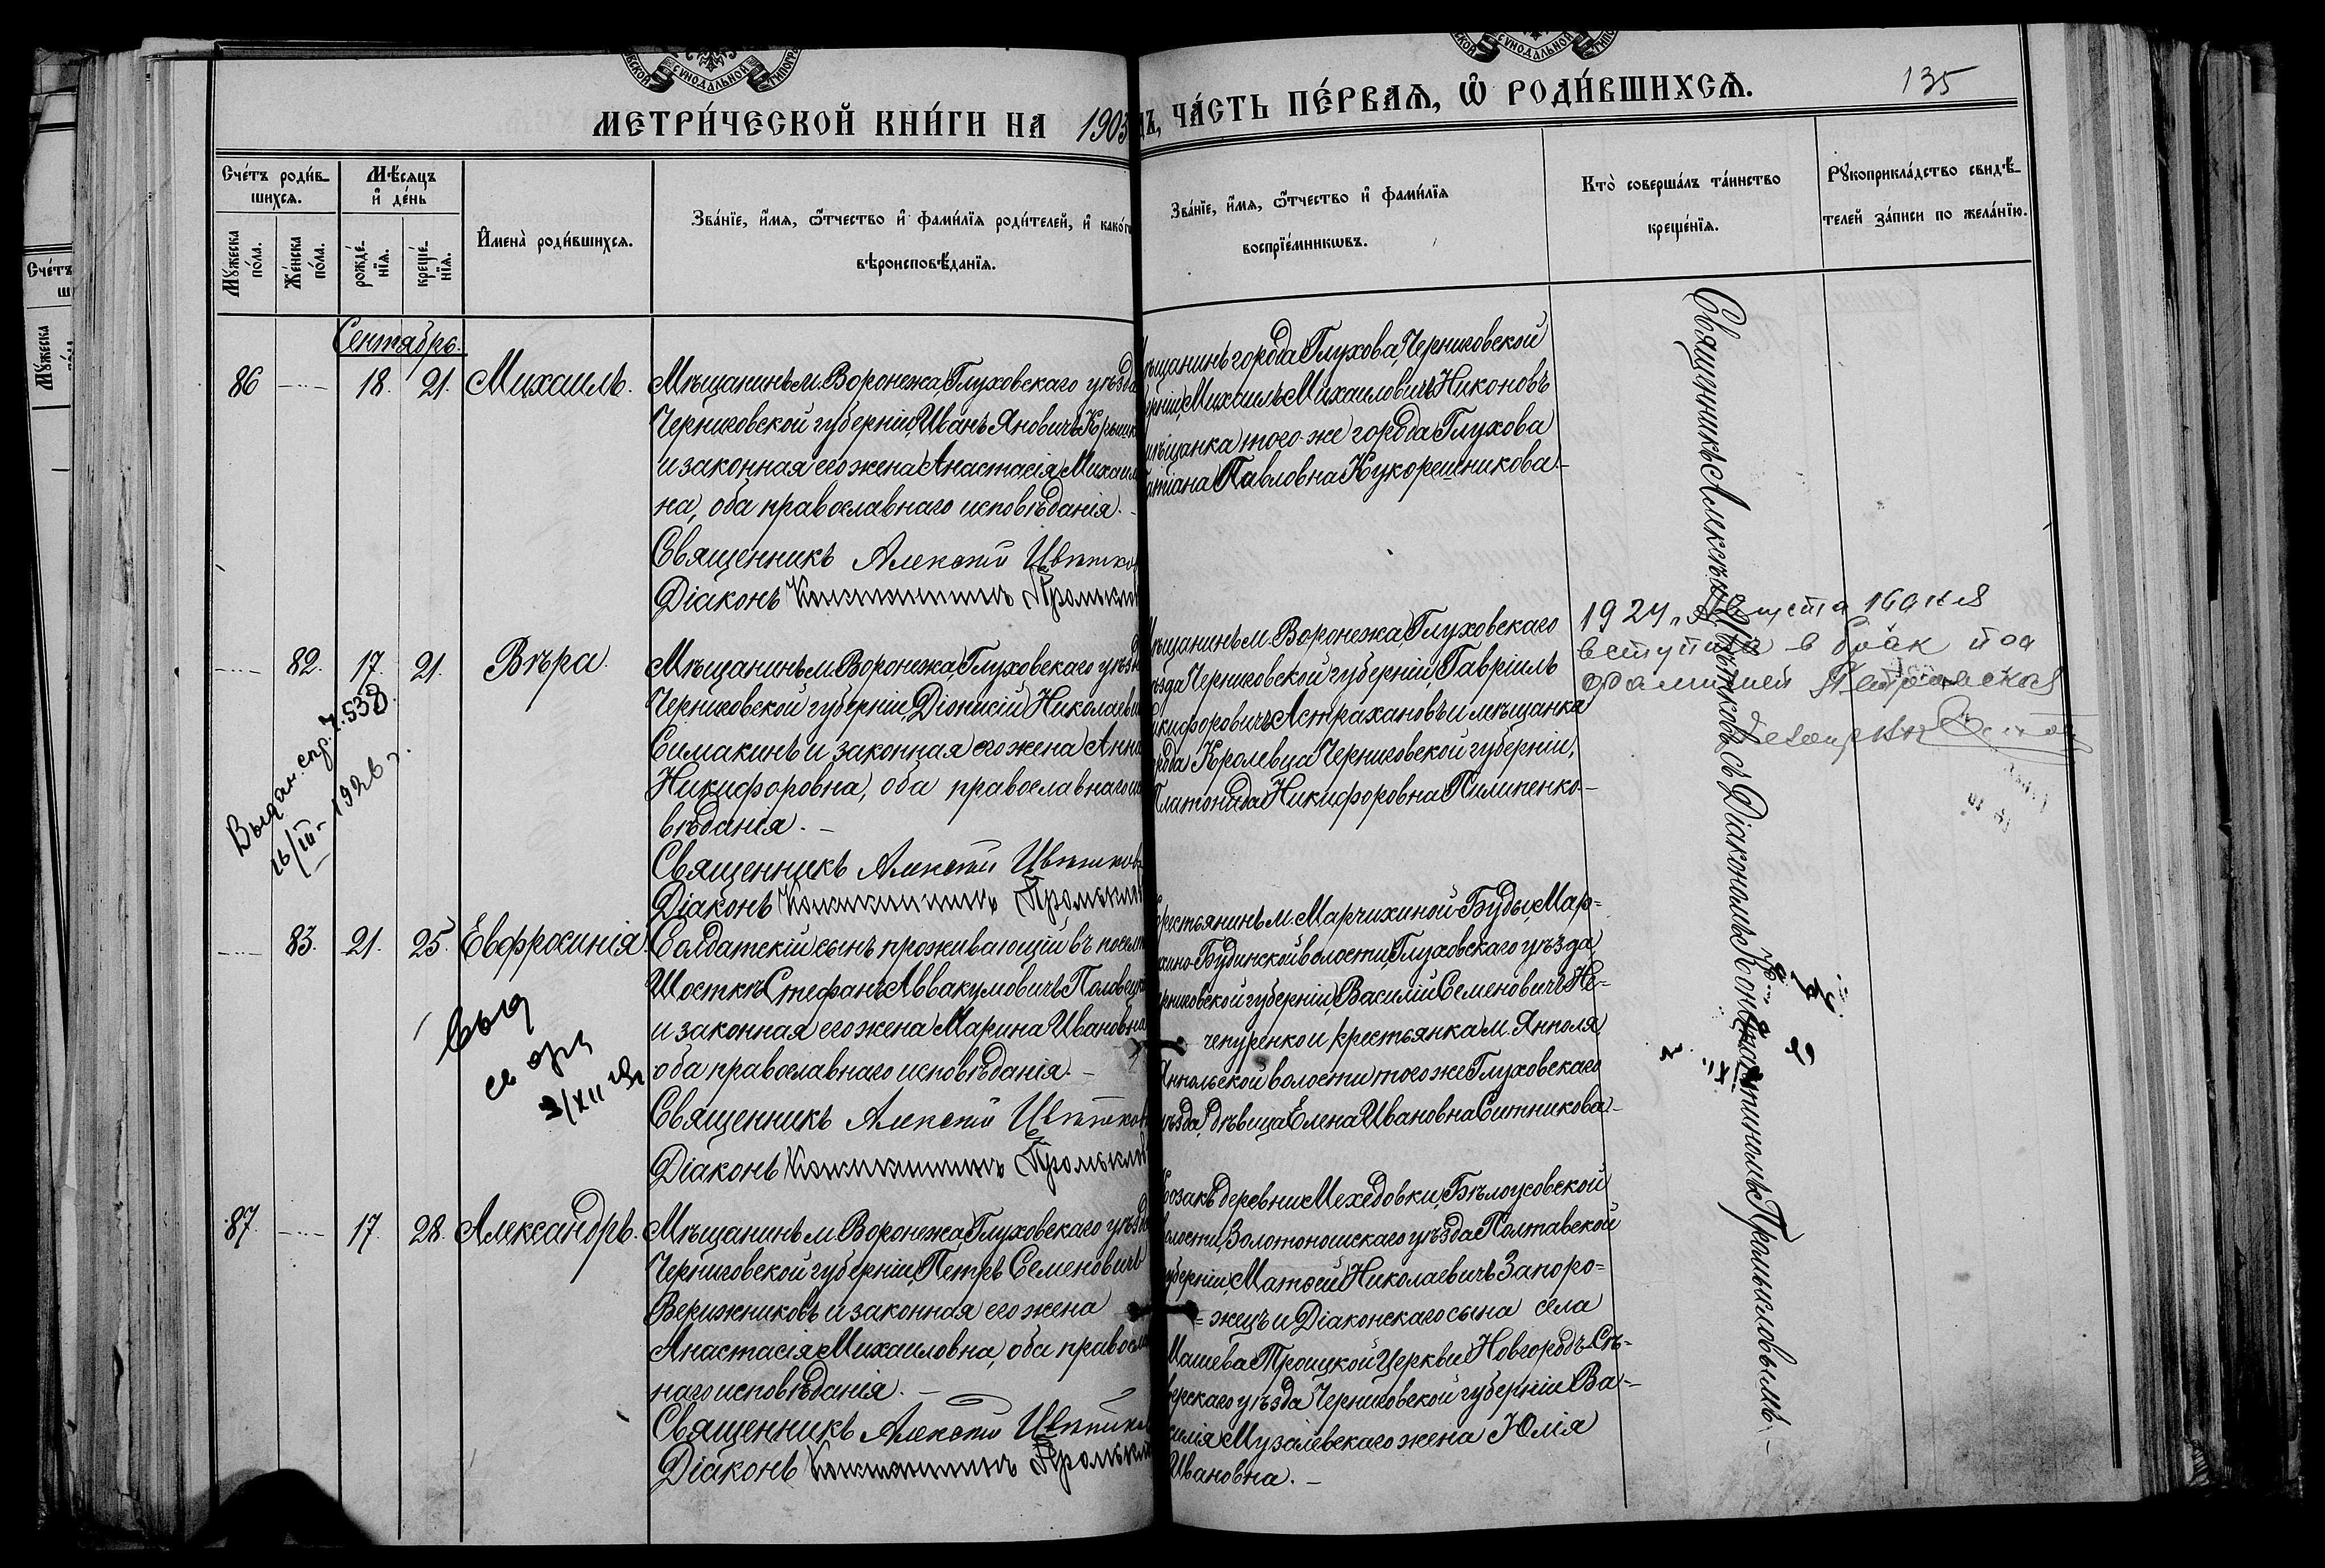 СУНОДАЛЬНОЙ
СУНОДАЛЬНОЙ
МЕТРИ́ЧЕСКОЙ КНИ́ГИ НА 1903
ЧА́СТЬ ПЕ́РВАЯ, Ѽ РОДИ́ВШИХСЯ.
135
Сче́тъ роди́в-
шихся.
Мѣ́сяцъ
и҆ де́нь
Мꙋ́жеска по́ла.
Же́нска по́ла.
рожде́-
нїя.
креще́-
нїя.
И҆мена̀ роди́вшихся.
Зва́нїе, и҆́мя, ѻ҆́тчество и҆ фами́лїя роди́телей, и҆ како́гѡ
вѣроисповѣ́данїя.
Зва́нїе, и҆́мя, ѻ҆́тчество и҆ фами́лїя
воспрїе́мникѡвъ.
Кто̀ соверша́лъ та́инство
креще́нїя.
Рꙋкоприкла́дство свидѣ́-
телей за́писи по жела́нїю.
Сентябрь.
86 18. 21. Михаилъ.
Мѣщанинъ м. Воронежа, Глуховскаго уѣзда
Черниговской губерніи, Иванъ Яновичъ
и законная его жена Анастасія Михаил
на, оба православнаго исповѣданія.
Священникъ Алексѣй Цвѣтко
Діаконъ Константинъ Промысло
мѣщанинъ города Глухова, Черниговской
ерніи, Михаилъ Михаиловичъ Никоновъ
мѣщанка того-же города Глухова
Татіана Павловна Кукорешникова.-
82. 17. 21. Вѣра.
Мѣщанинъ м. Воронежа, Глуховскаго уѣзд
Черниговской губерніи, Діонисій Николаеви
Симакинъ и законная его жена Анна
Никифоровна, оба православнаго ис
вѣданія. -
Священникъ Алексѣй Цвѣтков
Діаконъ Константинъ Промыслов
Мѣщанинъ м. Воронежа, Глуховскаго
ѣзда Черниговской губерніи, Гавріилъ
икифоровичъ Астрахановъ и мѣщанка
рода Кролевца Черниговской губерніи,
Платонида Никифоровна Пилипенко-
Выдан. спр. 7.538.
16/III- 1926 г.
1924, августа 16 дня
вступила в брак под
фамилией
83. 21. 25. Евфросинія.
Солдатскій сынъ проживающій въ посел
Шосткѣ Стефанъ Аввакумовичъ Половецк
и законная его жена Марина Ивановна
оба православнаго исповѣданія. -
Священникъ Алексѣй Цвѣтков
Діаконъ Константинъ Промыслов
Крестьянинъ м. Марчихиной-Буды Мар=
хино-Будинской волости, Глуховскаго уѣзда
ерниговской губерніи, Василій Семеновичъ Не=
чепуренко и крестьянка м. Янполя
Янпольской волости того же Глуховскаго
уѣзда, дѣвица Елена Ивановна Ситникова.-
Выд
3/XII
87. 17. 28. Александръ.
Мѣщанинъ м. Воронежа Глуховскаго уѣзд
Черниговской губерніи Петръ Семеновичъ
Верижниковъ и законная его жена
Анастасія Михаиловна, оба правосла
наго исповѣданія. -
Священникъ Алексѣй Цвѣтков
Діаконъ Константинъ Промысло
Козакъ деревни Мехедовки, Бѣлоусовской
олости, Золотоношскаго уѣзда Полтавской
губерніи, Матѳей Николаевичъ Запоро=
=жецъ и Діаконскаго сына села
Машева Троицкой Церкви Новгородъ-Сѣ-
верскаго уѣзда Черниговской губерніи Ва=
силія Музалевскаго жена Юлія
Ивановна. -
Священникъ Алексѣй Цвѣтковъ съ Діакономъ Константиномъ Промысловымъ. -